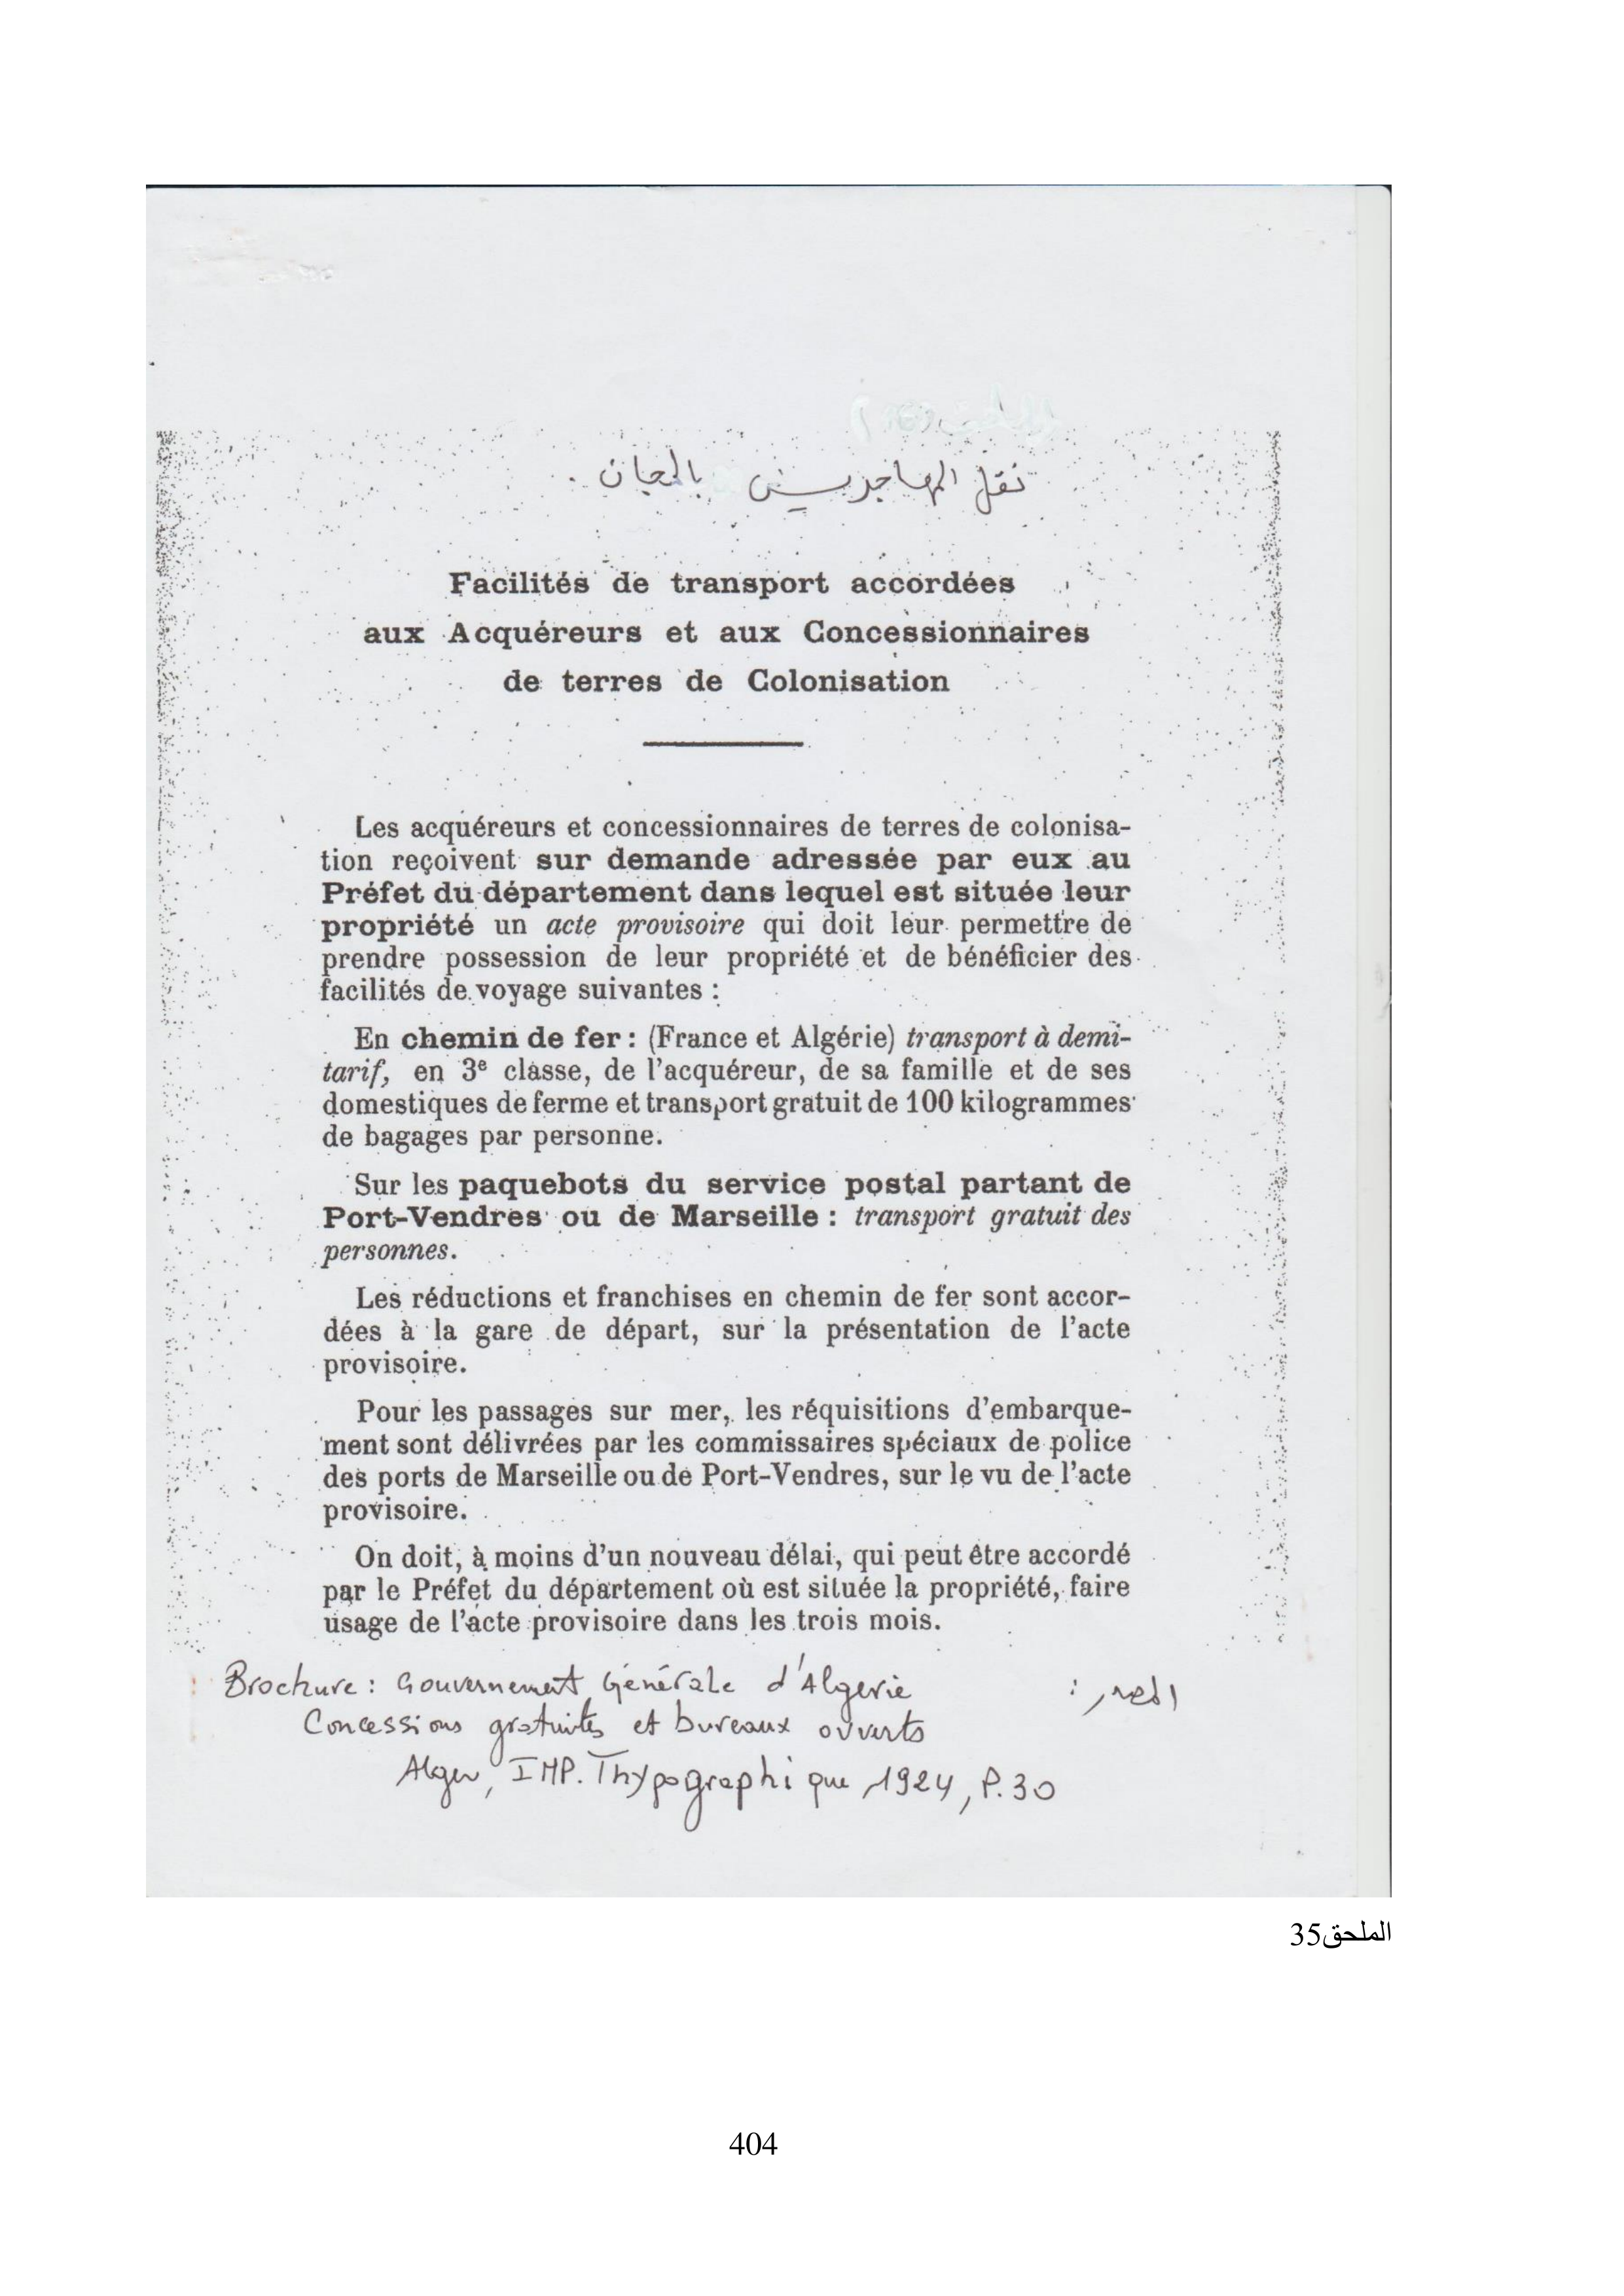 نقل المهاجرين بالمجان .
Facilités de transport accordées
aux Acquéreurs et aux Concessionnaires
de terres de Colonisation
Les acquéreurs et concessionnaires de terres de colonisa-
tion reçoivent sur demande adressée par eux au
Préfet du département dans lequel est située leur
propriété un acte provisoire qui doit leur permettre de
prendre possession de leur propriété et de bénéficier des
facilités de voyage suivantes :
En chemin de fer : (France et Algérie) transport à demi-
tarif, en 3e classe, de l'acquéreur, de sa famille et de ses
domestiques de ferme et transport gratuit de 100 kilogrammes
de bagages par personne.
Sur les paquebots du service postal partant de
Port-Vendres ou de Marseille : transport gratuit des
personnes.
Les réductions et franchises en chemin de fer sont accor-
dées à la gare de départ, sur la présentation de l'acte
provisoire.
Pour les passages sur mer, les réquisitions d'embarque-
ment sont délivrées par les commissaires spéciaux de police
des ports de Marseille ou de Port-Vendres, sur le vu de l'acte
provisoire.
On doit, à moins d'un nouveau délai, qui peut être accordé
par le Préfet du département où est située la propriété, faire
usage de l'acte provisoire dans les trois mois.
المصدر :
Brochure : Gouvernement Générale d'Algerie
Concessions gratuites et bureaux ouverts
Alger, IMP. Thypographique 1924, P.30
الملحق35
404